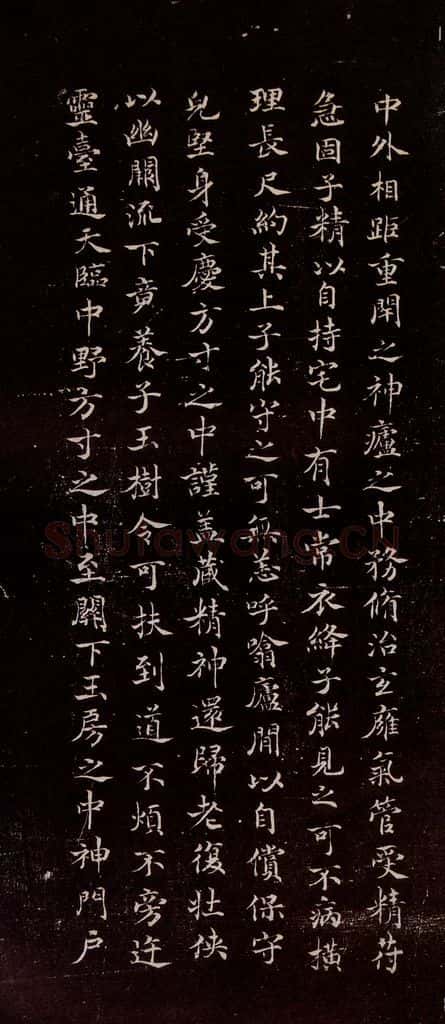 中外相距重閇之神廬之中務脩治玄廱氣管受精苻
急固子精以自持宅中有士常衣絳子能見之可不病橫
理長尺約其上子能守之可無恙呼噏廬間以自償保守
皃堅身受慶方寸之中謹盖藏精神還歸老復壯俠
以幽闕流下竟養子玉樹令可扶到道不煩不旁迕
靈臺通天臨中野方寸之中至關下玉房之中神門戶
Shufawang.CN